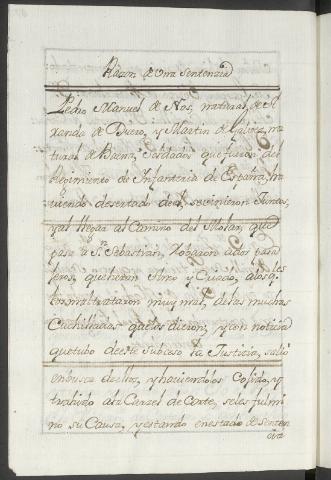 Razon de una Sentenzia
Pedro Manuel de Nos, natural de A
randa de Duero, y Martin de Galvez, na
tural de Baena, Soldados que fueron del
Regimiento de Infanteria de España, ha
viendo desertado de el se vinieron Juntos,
y al llegar al Camino del Molar, que
pasa a Sn Sebastian, Robaron a dos pasa
jeros, que heran Amo y Criado, a los q.les
los maltrataron muy mal, de las muchas
Cuchilladas que les dieron; y con noticia
que tubo de este Subceso la Justicia, salio
en busca de ellos, y haviendolos Cojido, y
trahido a la Carzel de Corte, se les fulmi
no su Causa, y estando en estado de Senten
cia